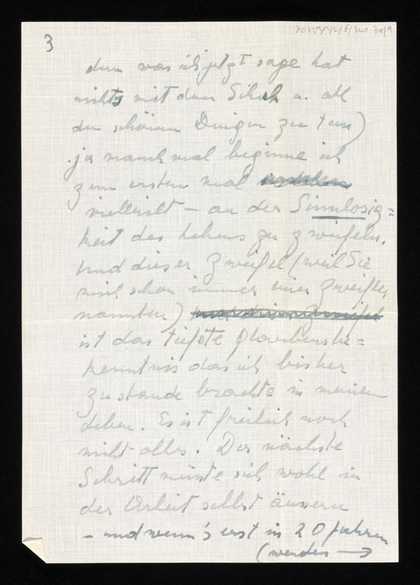 3
denn was ich jetzt sage hat
nichts mit dem Glück u. all
den schönen Dingen zu tun)
ja manchmal beginne ich
zum ersten mal
vielleicht – an der Sinnlosig=
keit des Lebens zu zweifeln.
Und dieser Zweifel (weil Sie
mich schon immer einen Zweifler
nannten)
ist das tiefste Glaubensbe=
kenntnis das ich bisher
zustande brachte in meinem
Leben. Es ist freilich noch
nicht alles. Der nächste
Schritt müsste sich wohl in
der Arbeit selbst äussern
– und wenn's erst in 20 Jahren
(wenden →